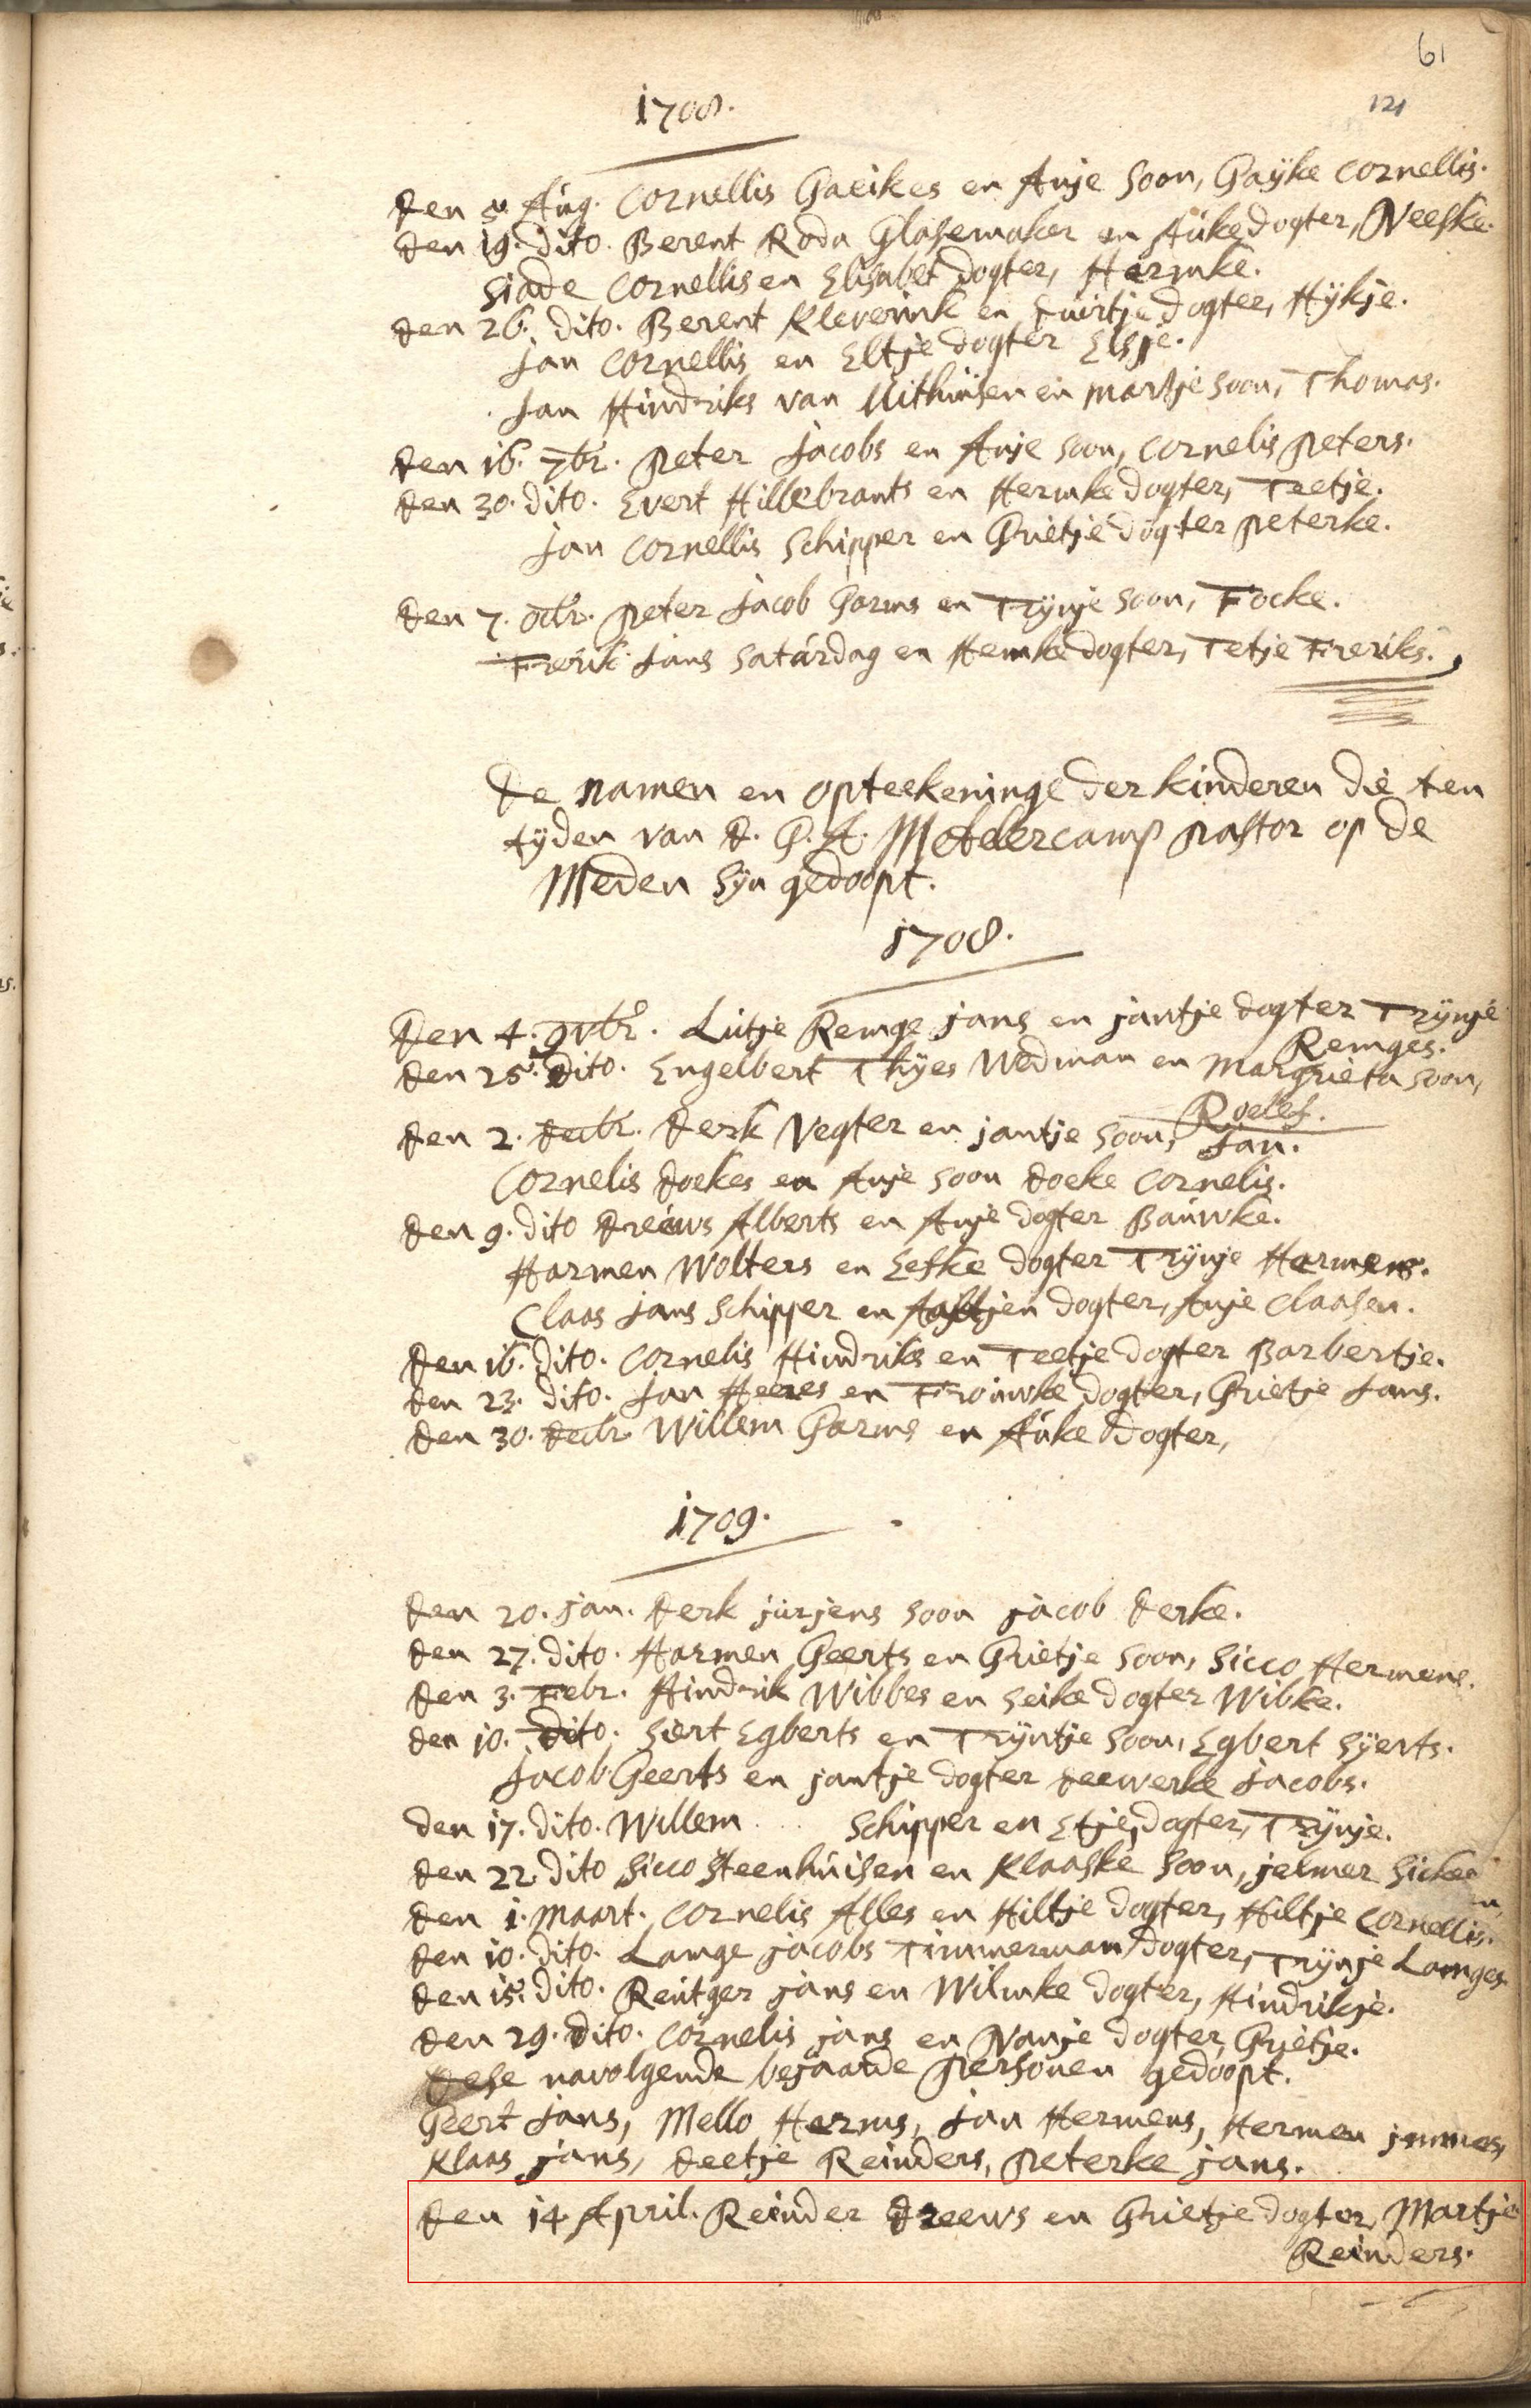 61
121
1708.
den 5 Aug. Cornellis Gaeikes en Anje soon, Gaÿke Cornellis.
den 19. dito. Berent Roda Glasemaker en Auke dogter, Neeske.
Siade Cornellis en Elisabet dogter, Harmke.
den 26. dito. Berent Kleverink en dogter, Hÿkje.
Jan Cornellis en Eltje dogter Elsje.
Jan Hindriks van Uithuisen en Martje soon, Thomas.
den 16. 7br. Peter Jacobs en Anje soon, Cornelis Peters.
den 30. dito. Evert Hillebrants en Hermke dogter, Tretje.
Jan Cornellis Schipper en Grietje dogter Peterke.
den 7. octbr. Peter Jacob Garms en Trÿnje soon, Focke.
Frerik Jans Saturdag en Hemke dogter, Tetje Freriks.
De namen en opteekeninge der kinderen die ten
tyden van d. G. A. Metelercamp pastor op de
Meden syn gedoopt.
1708.
Den 4. 9vbr. Lutje Remge jans en jantje dogter Trÿnje
Remges.
den 25. dito. Engelbert Thÿes Wedman en Margrieta soon,
Roelef.
den 2. decbr. Derk Vegter en jantje soon, Jan.
Cornelis doekes en Anje soon doeke Cornelis.
den 9. dito dreeuws Alberts en Anje dogter Bauwke.
Harmen Wolters en Eefke dogter Trÿnje Harmens.
Claas Jans Schipper en dogter, Anje Claasen.
den 16. dito. Cornelis Hindriks en Teetje dogter Barbertje.
den 23. dito. Jan Heeres en Frouwke dogter, Grietje Jans.
den 30. decbr Willem Garms en Auke dogter,
1709.
den 20. jan. derk jurjens soon jacob derke.
den 27. dito. Harmen Geerts en Grietje soon, Sicco Hermens.
den 3. Febr. Hindrik Wibbes en Seike dogter Wibke.
den 10. dito. Siert Egberts en Trÿntje soon, Egbert Sÿerts.
Jacob Geerts en jantje dogter deewerke Jacobs.
den 17. dito. Willem ... Schipper en Etje, dogter, Trÿnje.
den 22 dito Sicco Steenhuisen en Klaaske soon, jelmer
den 1. Maart. Cornelis Alles en Hiltje dogter, Hiltje Cornellis.
den 10. dito. Lamge jacobs Timmerman dogter, Trÿnje Lamges.
den 15. dito. Reutger jans en Wilmke dogter, Hindrikje.
den 29. dito. Cornelis jans en Nanje dogter, Grietje.
dese navolgende bejaarde personen gedoopt.
Geert Jans, Mello Herms, Jan Hermens, Hermen jmmes,
Klaas jans, deetje Reinders, Peterke jans.
den 14 April. Reinder dreews en Grietje dogter, Martje
Reinders.